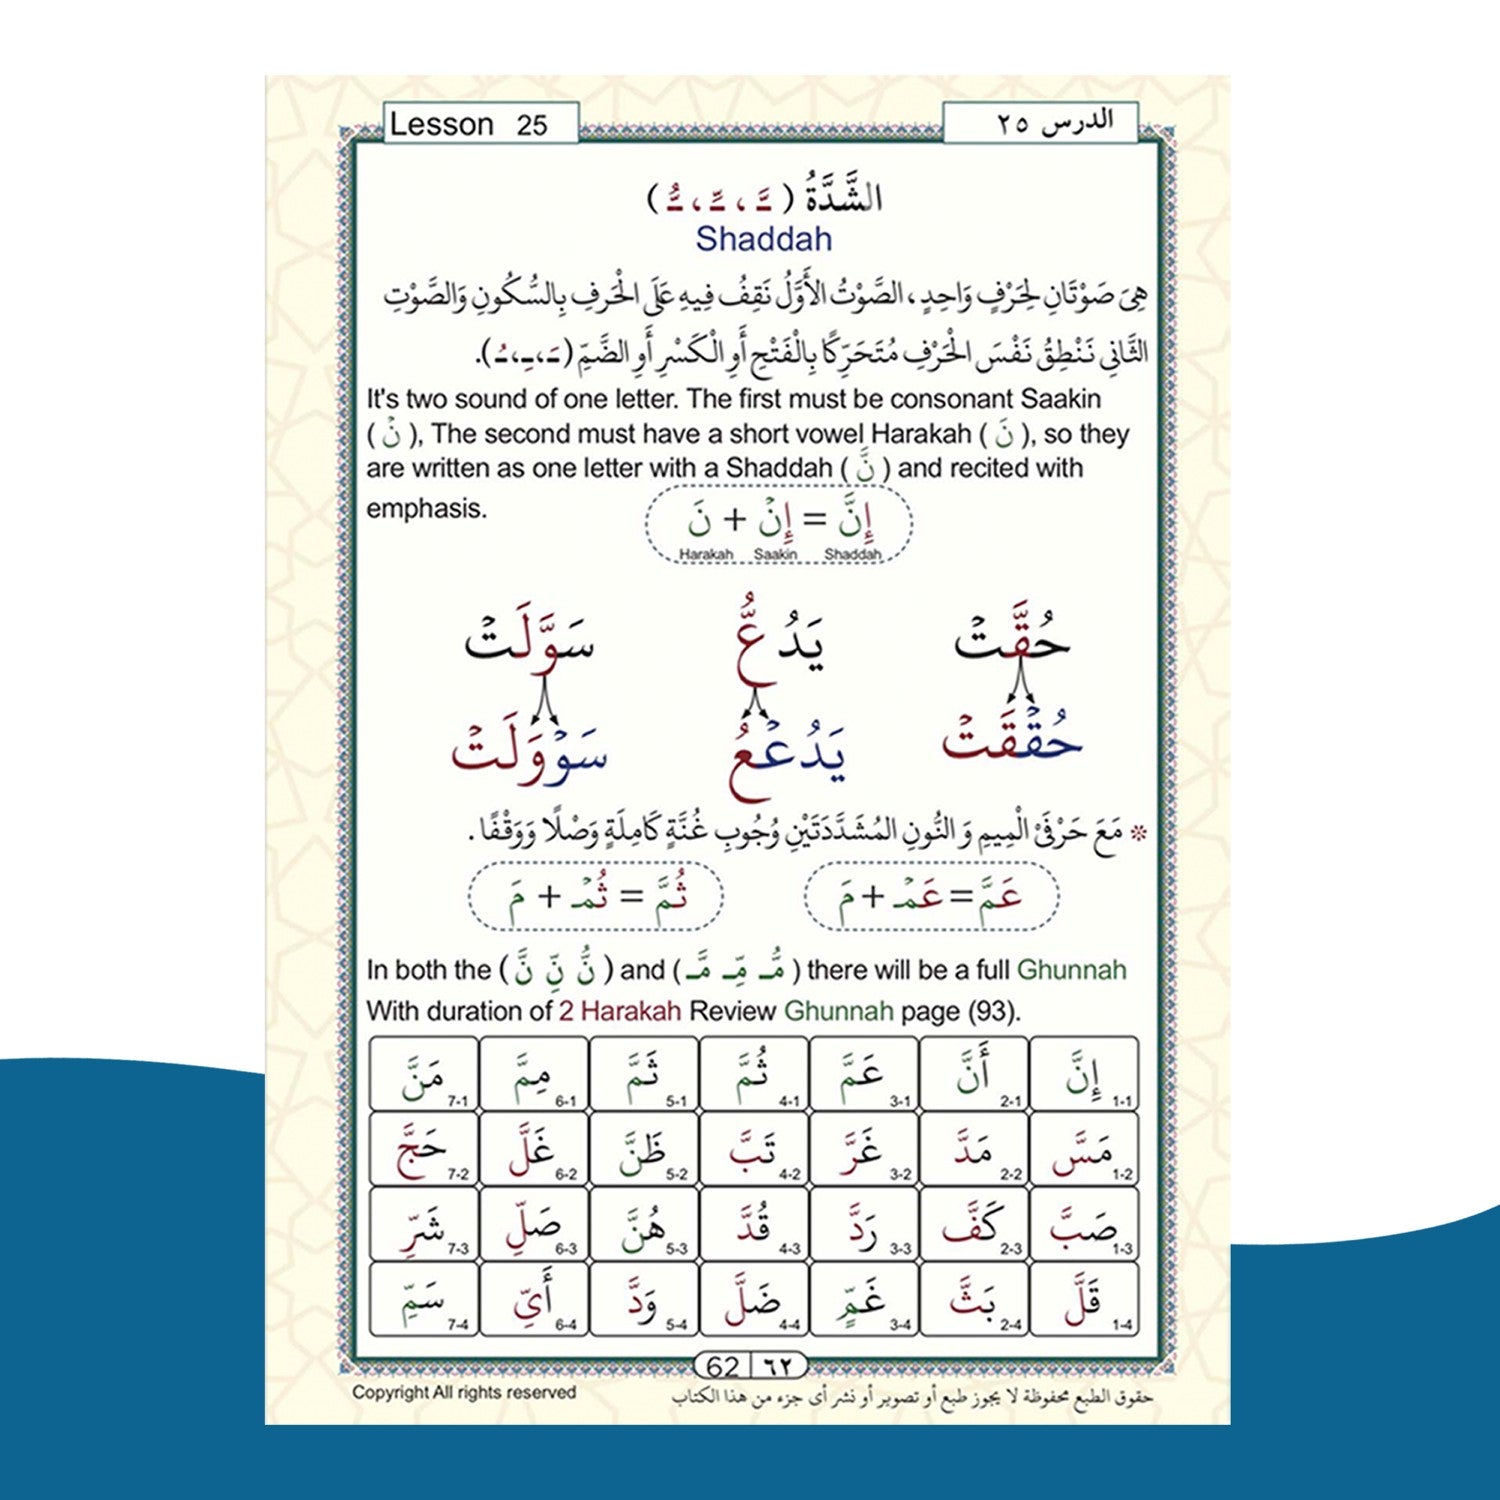 Lesson 25
الدرس ٢٥
الشَّدَّةُ ( ـَّ ، ـِّ ، ـُّ )
Shaddah
هِيَ صَوْتَانِ لِحَرْفٍ وَاحِدٍ، الصَّوْتُ الأَوَّلُ نَقِفُ فِيهِ عَلَى الْحَرفِ بِالسُّكُونِ وَالصَّوْتِ
الثَّانِي نَنْطِقُ نَفْسَ الْحَرْفِ مُتَحَرِّكًا بِالْفَتْحِ أَوِ الْكَسْرِ أَوِ الضَّمِّ (ـَ، ـِ، ـُ).
It's two sound of one letter. The first must be consonant Saakin
( نْ ), The second must have a short vowel Harakah ( نَ ), so they
are written as one letter with a Shaddah ( نَّ ) and recited with
emphasis.
إِنَّ = إِنْ + نَ
Harakah Saakin Shaddah
حُقَّتْ يَدُعُّ سَوَّلَتْ
حُقْقَتْ يَدُعْعُ سَوْوَلَتْ
* مَعَ حَرْفَيْ الْمِيمِ وَ النُّونِ المُشَدَّدَتَيْنِ وُجُوبِ غُنَّةٍ كَامِلَةٍ وَصْلًا وَوَقْفًا .
عَمَّ = عَمْـ + مَ ثُمَّ = ثُمْـ + مَ
In both the ( نَّ نِّ نُّ ) and ( مَّـ مِّـ مُّـ ) there will be a full Ghunnah
With duration of 2 Harakah Review Ghunnah page (93).
إِنَّ 1-1 أَنَّ 2-1 عَمَّ 3-1 ثُمَّ 4-1 ثَمَّ 5-1 مِمَّ 6-1 مَنَّ 7-1
مَسَّ 1-2 مَدَّ 2-2 غَرَّ 3-2 تَبَّ 4-2 ظَنَّ 5-2 غَلَّ 6-2 حَجَّ 7-2
صَبَّ 1-3 كَفَّ 2-3 رَدَّ 3-3 قُدَّ 4-3 هُنَّ 5-3 صَلِّ 6-3 شَرِّ 7-3
قَلَّ 1-4 بَثَّ 2-4 غَمٍّ 3-4 ضَلَّ 4-4 وَدَّ 5-4 أَيِّ 6-4 سَمِّ 7-4
62 ٦٢
Copyright All rights reserved
حقوق الطبع محفوظة لا يجوز طبع أو تصوير أو نشر أى جزء من هذا الكتاب